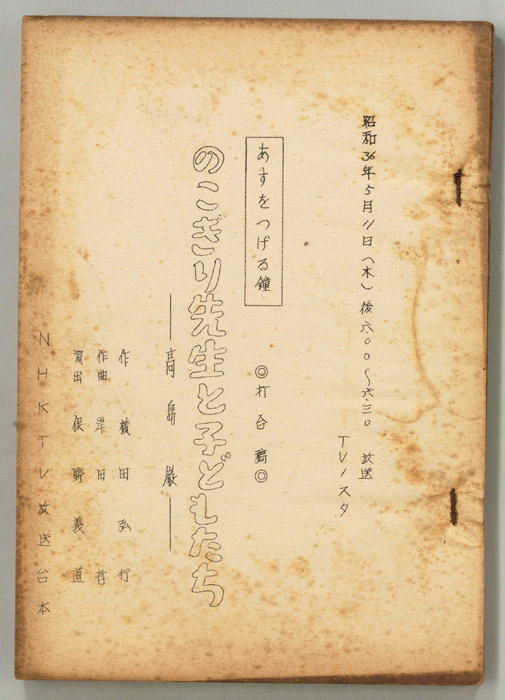 昭和36年5月11日（木）後六.〇〇〜六.三〇 放送
TV一スタ
あすをつげる鐘
◎打合稿◎
のこぎり先生と子どもたち
――高島巌――
作 横田弘行
作曲 岸田哲
演出 俣野義道
NHKTV放送台本